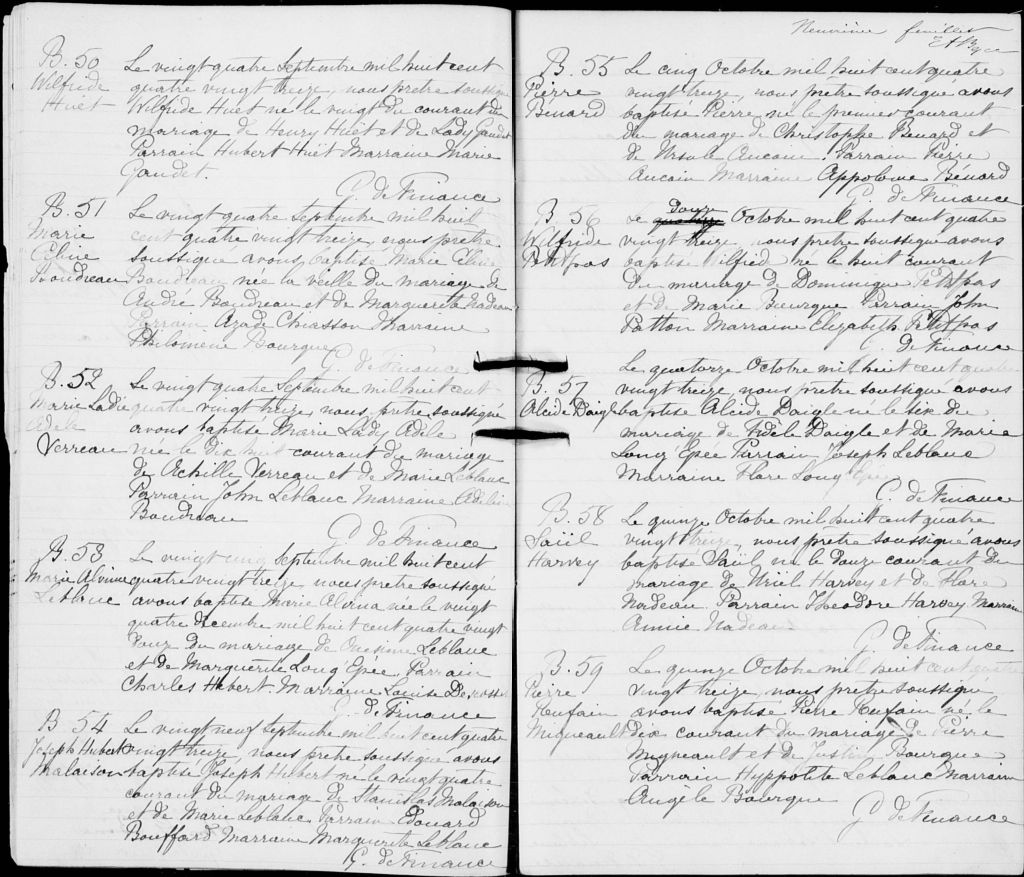 B. 50
Wilfride
Huet
Le vingt quatre Septembre mil huit cent
quatre vingt treize, nous pretre soussigné
Wilfride Huet né le vingt du courant du
mariage de Henry Huet et de Lady Gaudet
Parrain Hubert Huët Marraine Marie
Gaudet.
G. de Finance
B. 51
Marie
Céline
Boudreau
Le vingt quatre Septembre mil huit
cent quatre vingt treize, nous pretre
soussigné avons baptisé Marie Céline
Boudreau née la veille du mariage de
André Boudreau et de Marguerite Nadeau
Parrain Azade Chiasson Marraine
Philomene Bourque
G. de Finance
B. 52
Marie Ladie
Adèle
Verreau
Le vingt quatre Septembre mil huit cent
quatre vingt treize, nous pretre soussigné
avons baptisé Marie Lady Adèle
née le dix huit courant du mariage
de Achille Verreau et de Marie Leblanc
Parrain John Leblanc Marraine
Boudreau
G. de Finance
B. 53
Marie Alvina
Leblanc
Le vingt cinq Septembre mil huit cent
quatre vingt treize, nous pretre soussigné
avons baptisé Marie Alvina née le vingt
quatre decembre mil huit cent quatre vingt
douze du mariage de Onesime Leblanc
et de Marguerite Long Epée Parrain
Charles Hebert Marraine Louise
G. de Finance
B 54
Joseph Hubert
Malaison
Le vingt neuf Septembre mil huit cent quatre
vingt treize, nous pretre soussigné avons
baptisé Joseph Hubert né le vingt quatre
courant du mariage de Stanislas Malaison
et de Marie Leblanc Parrain Edouard
Bouffard Marraine Marguerite Leblanc
G. de Finance
Neuvième feuillet
B. 55
Pierre
Bénard
Le cinq Octobre mil huit cent quatre
vingt treize, nous pretre soussigné avons
baptisé Pierre né le premier courant
du mariage de Christophe Bénard et
de Ursule Aucoin. Parrain Pierre
Aucoin Marraine Appoline Bénard
G. de Finance
B. 56
Wilfride
Petitpas
Le douze Octobre mil huit cent quatre
vingt treize, nous pretre soussigné avons
baptisé Wilfrid né le huit courant
du mariage de Dominique Petitpas
et de Marie Bourque Parrain John
Patton Marraine Elizabeth Petitpas
G. de Finance
B. 57
Alcide Daigle
Le quatorze Octobre mil huit cent quatre
vingt treize, nous pretre soussigné avons
baptisé Alcide Daigle né le six du
mariage de Fidèle Daigle et de Marie
Long Epée Parrain Joseph Leblanc
Marraine Flore Long Epée
G. de Finance
B. 58
Saül
Harvey
Le quinze Octobre mil huit cent quatre
vingt treize, nous pretre soussigné avons
baptisé Saül né le douze courant du
mariage de Uriel Harvey et de Flore
Nadeau. Parrain Theodore Harvey Marraine
Annie Nadeau
G. de Finance
B. 59
Pierre
Rufain
Migneault
Le quinze Octobre mil huit cent quatre
vingt treize, nous pretre soussigné
avons baptisé Pierre Rufain né le
dix courant du mariage de Pierre
Migneault et de Bourque
Parrain Hyppolite Leblanc Marraine
Angèle Bourque
G. de Finance